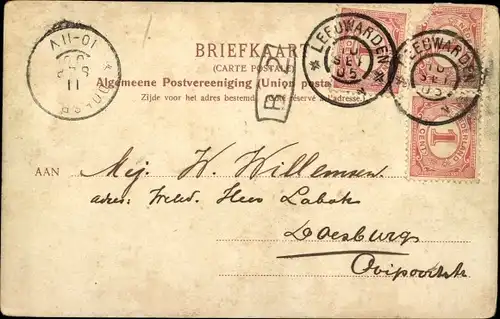 BRIEFKAART
(CARTE POSTALE)
Algemeene Postvereeniging (Union postale
Zijde voor het adres bestemd. réservé à l'adresse.)
LEEUWARDEN
SEP
05
LEEUWARDEN
NEDERLAND
1
CENT
10-11V
11
AAN Mej. W. Willemsen
adres: Heer
Doesburg
Ooipoortstr